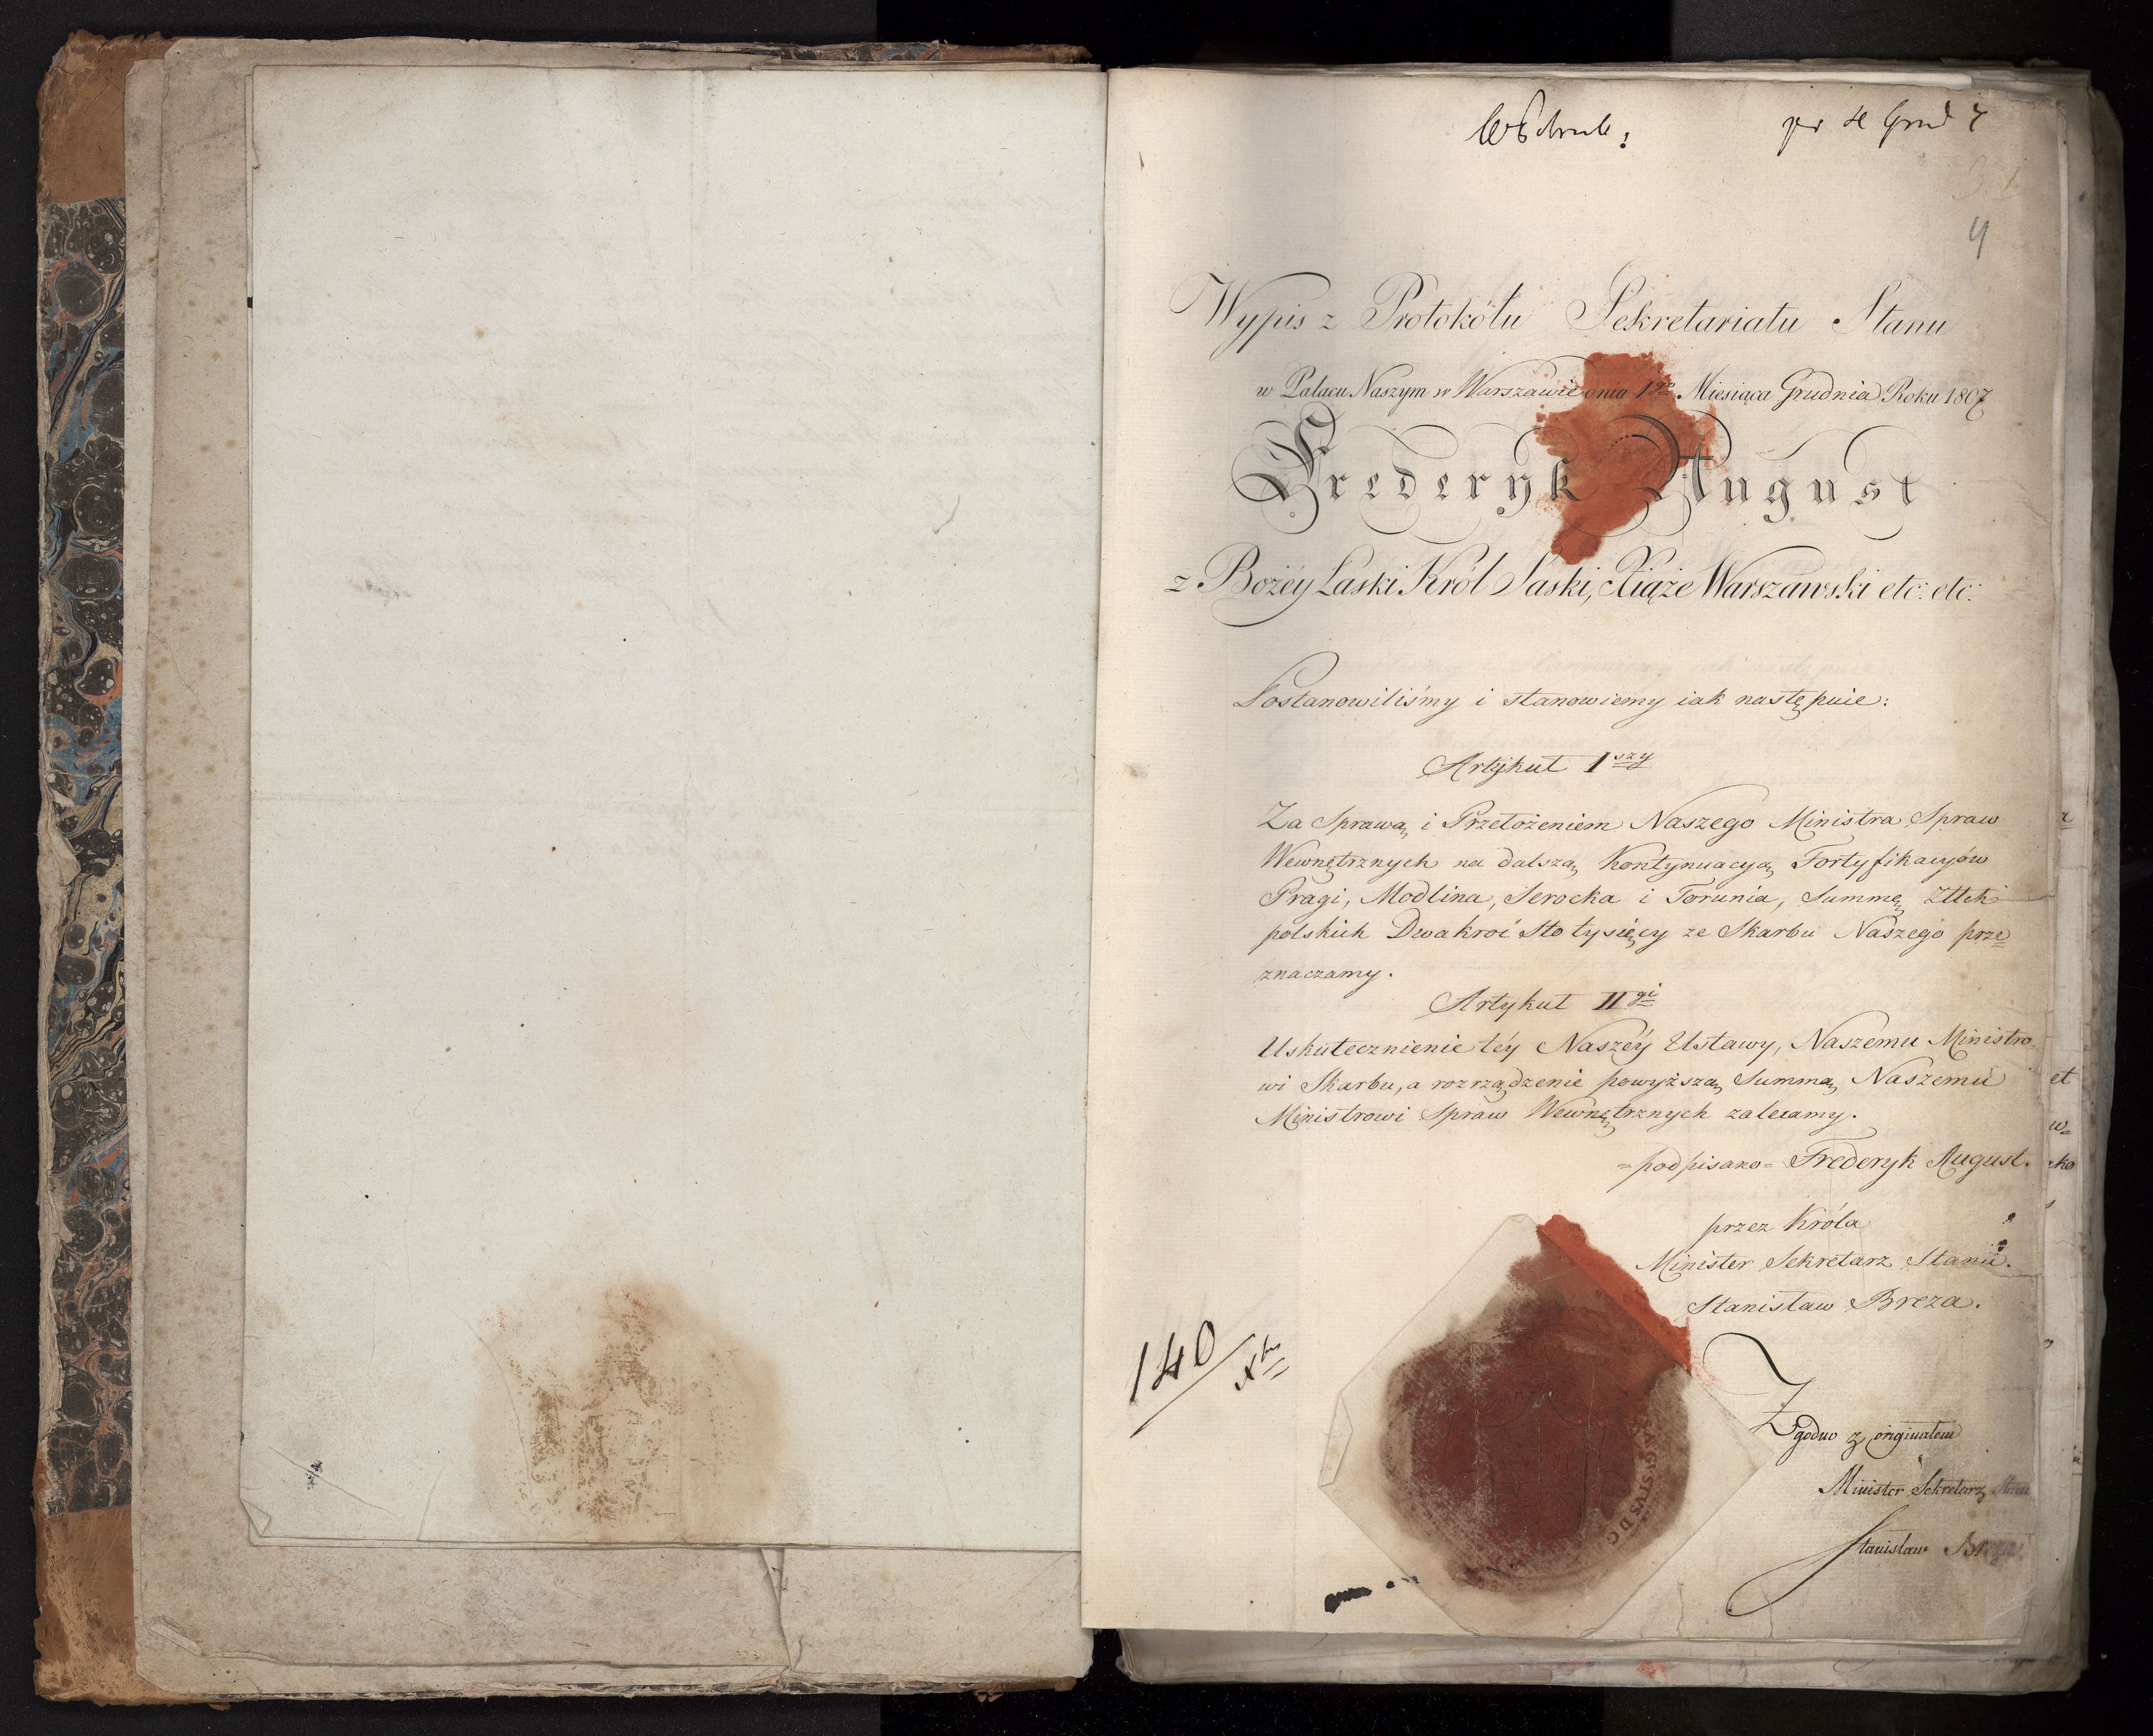 4
Wypis z Protokółu Sekretariatu Stanu
w Pałacu Naszym w Warszawie dnia 1go Miesiąca Grudnia Roku 1807
Frederyk August
z Bożéy Łaski Król Saski, Xiąże Warszawski etc: etc:
Postanowiliśmy i stanowiemy iak następuie:
Artykuł Iszy
Za Sprawą i Przełożeniem Naszego Ministra Spraw
Wewnętrznych na dalszą Kontynuacyą Fortyfikacyów
Pragi, Modlina, Serocka i Torunia, Summę Złłch
polskich Dwakroć Sto tysięcy ze Skarbu Naszego prze=
znaczamy.
Artykuł IIgi
Uskutecznienie téy Naszéy Ustawy, Naszemu Ministro=
wi Skarbu, a rozrządzenie powyższą Summą Naszemu
Ministrowi Spraw Wewnętrznych zalecamy.
=podpisano= Frederyk August.
przez Króla
Minister Sekretarz Stanu.
Stanisław Breza.
140
Xbr
Zgodno z originałem
Minister Sekretarz Stanu
Stanisław Breza
AVGVSTVS D G